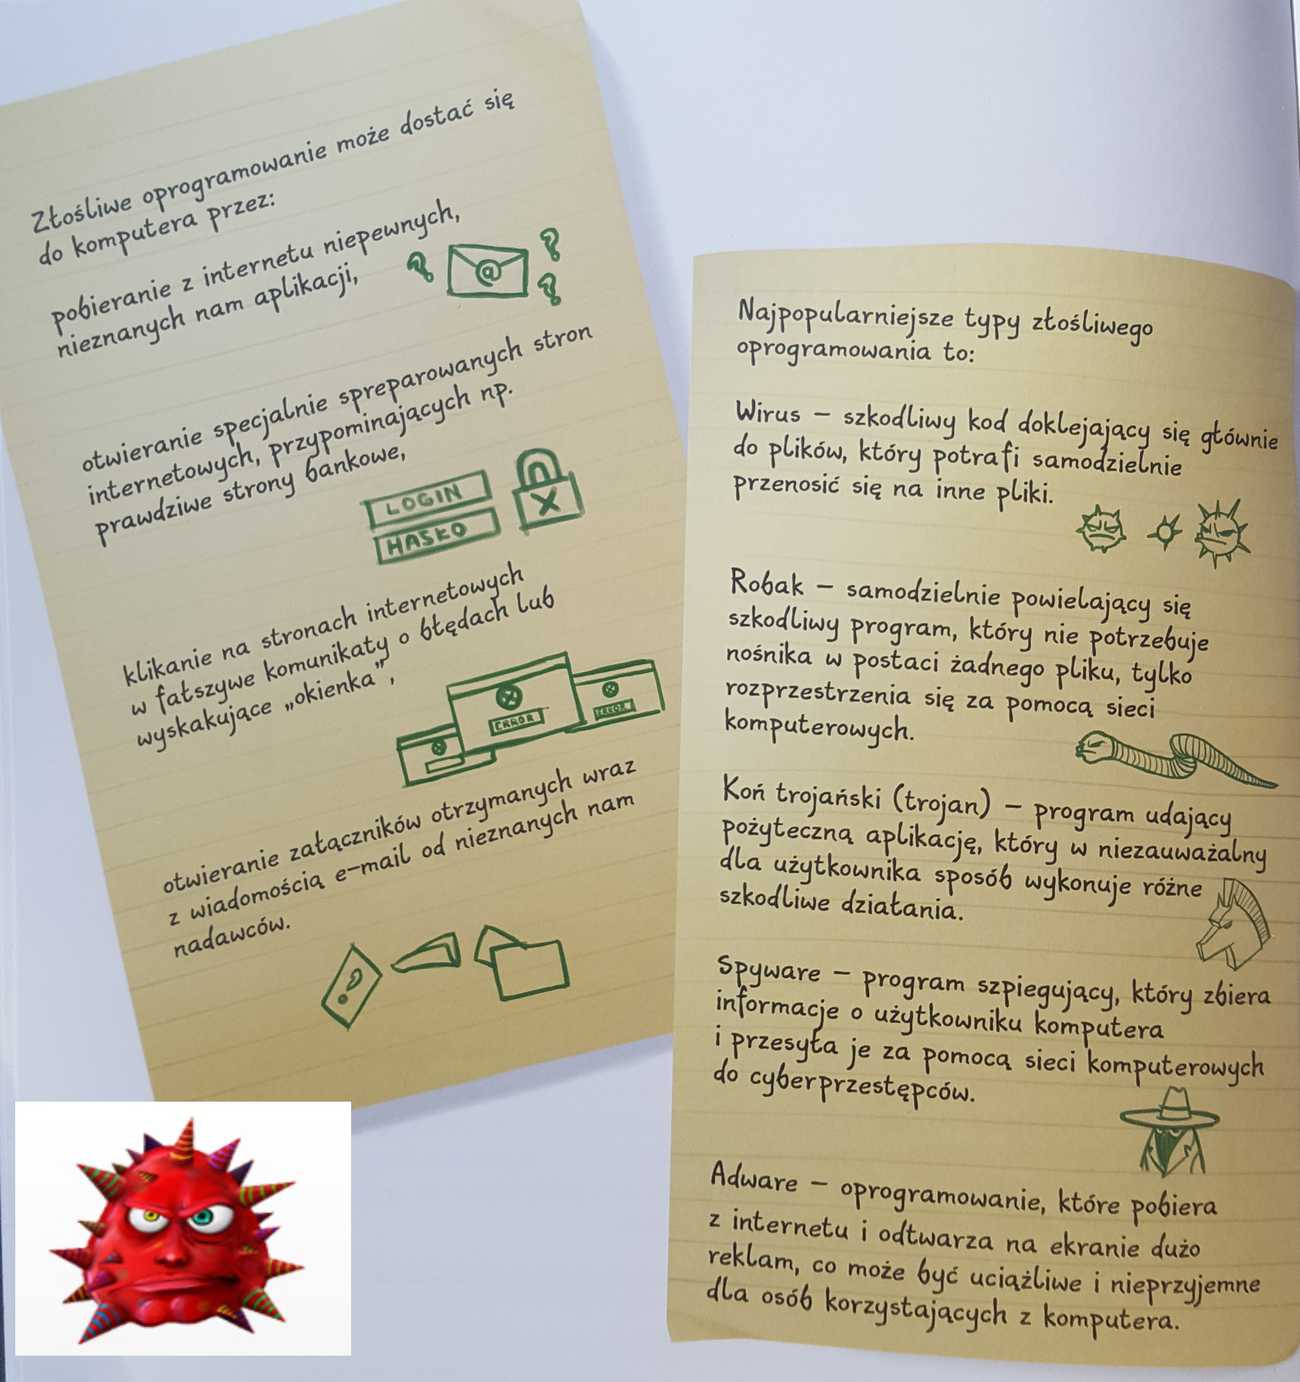 Złośliwe oprogramowanie może dostać się
do komputera przez:
pobieranie z internetu niepewnych,
nieznanych nam aplikacji,
otwieranie specjalnie spreparowanych stron
internetowych, przypominających np.
prawdziwe strony bankowe,
LOGIN
HASŁO
klikanie na stronach internetowych
w fałszywe komunikaty o błędach lub
wyskakujące „okienka”,
ERROR
ERROR
otwieranie załączników otrzymanych wraz
z wiadomością e-mail od nieznanych nam
nadawców.
Najpopularniejsze typy złośliwego
oprogramowania to:
Wirus – szkodliwy kod doklejający się głównie
do plików, który potrafi samodzielnie
przenosić się na inne pliki.
Robak – samodzielnie powielający się
szkodliwy program, który nie potrzebuje
nośnika w postaci żadnego pliku, tylko
rozprzestrzenia się za pomocą sieci
komputerowych.
Koń trojański (trojan) – program udający
pożyteczną aplikację, który w niezauważalny
dla użytkownika sposób wykonuje różne
szkodliwe działania.
Spyware – program szpiegujący, który zbiera
informacje o użytkowniku komputera
i przesyła je za pomocą sieci komputerowych
do cyberprzestępców.
Adware – oprogramowanie, które pobiera
z internetu i odtwarza na ekranie dużo
reklam, co może być uciążliwe i nieprzyjemne
dla osób korzystających z komputera.